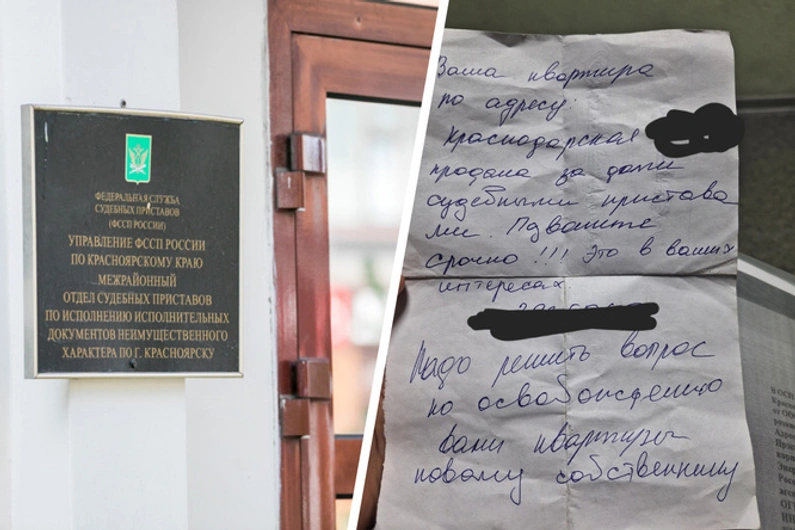 ФЕДЕРАЛЬНАЯ СЛУЖБА
СУДЕБНЫХ ПРИСТАВОВ
(ФССП РОССИИ)
УПРАВЛЕНИЕ ФССП РОССИИ
ПО КРАСНОЯРСКОМУ КРАЮ
МЕЖРАЙОННЫЙ
ОТДЕЛ СУДЕБНЫХ ПРИСТАВОВ
ПО ИСПОЛНЕНИЮ ИСПОЛНИТЕЛЬНЫХ
ДОКУМЕНТОВ НЕИМУЩЕСТВЕННОГО
ХАРАКТЕРА ПО Г. КРАСНОЯРСКУ
Ваша квартира
по адресу:
Краснодарская
продана за долги
судебными пристава
ми. Позвоните
срочно!!! Это в ваших
интересах.
Надо решить вопрос
по освобождению
вами квартиры
новому собственнику